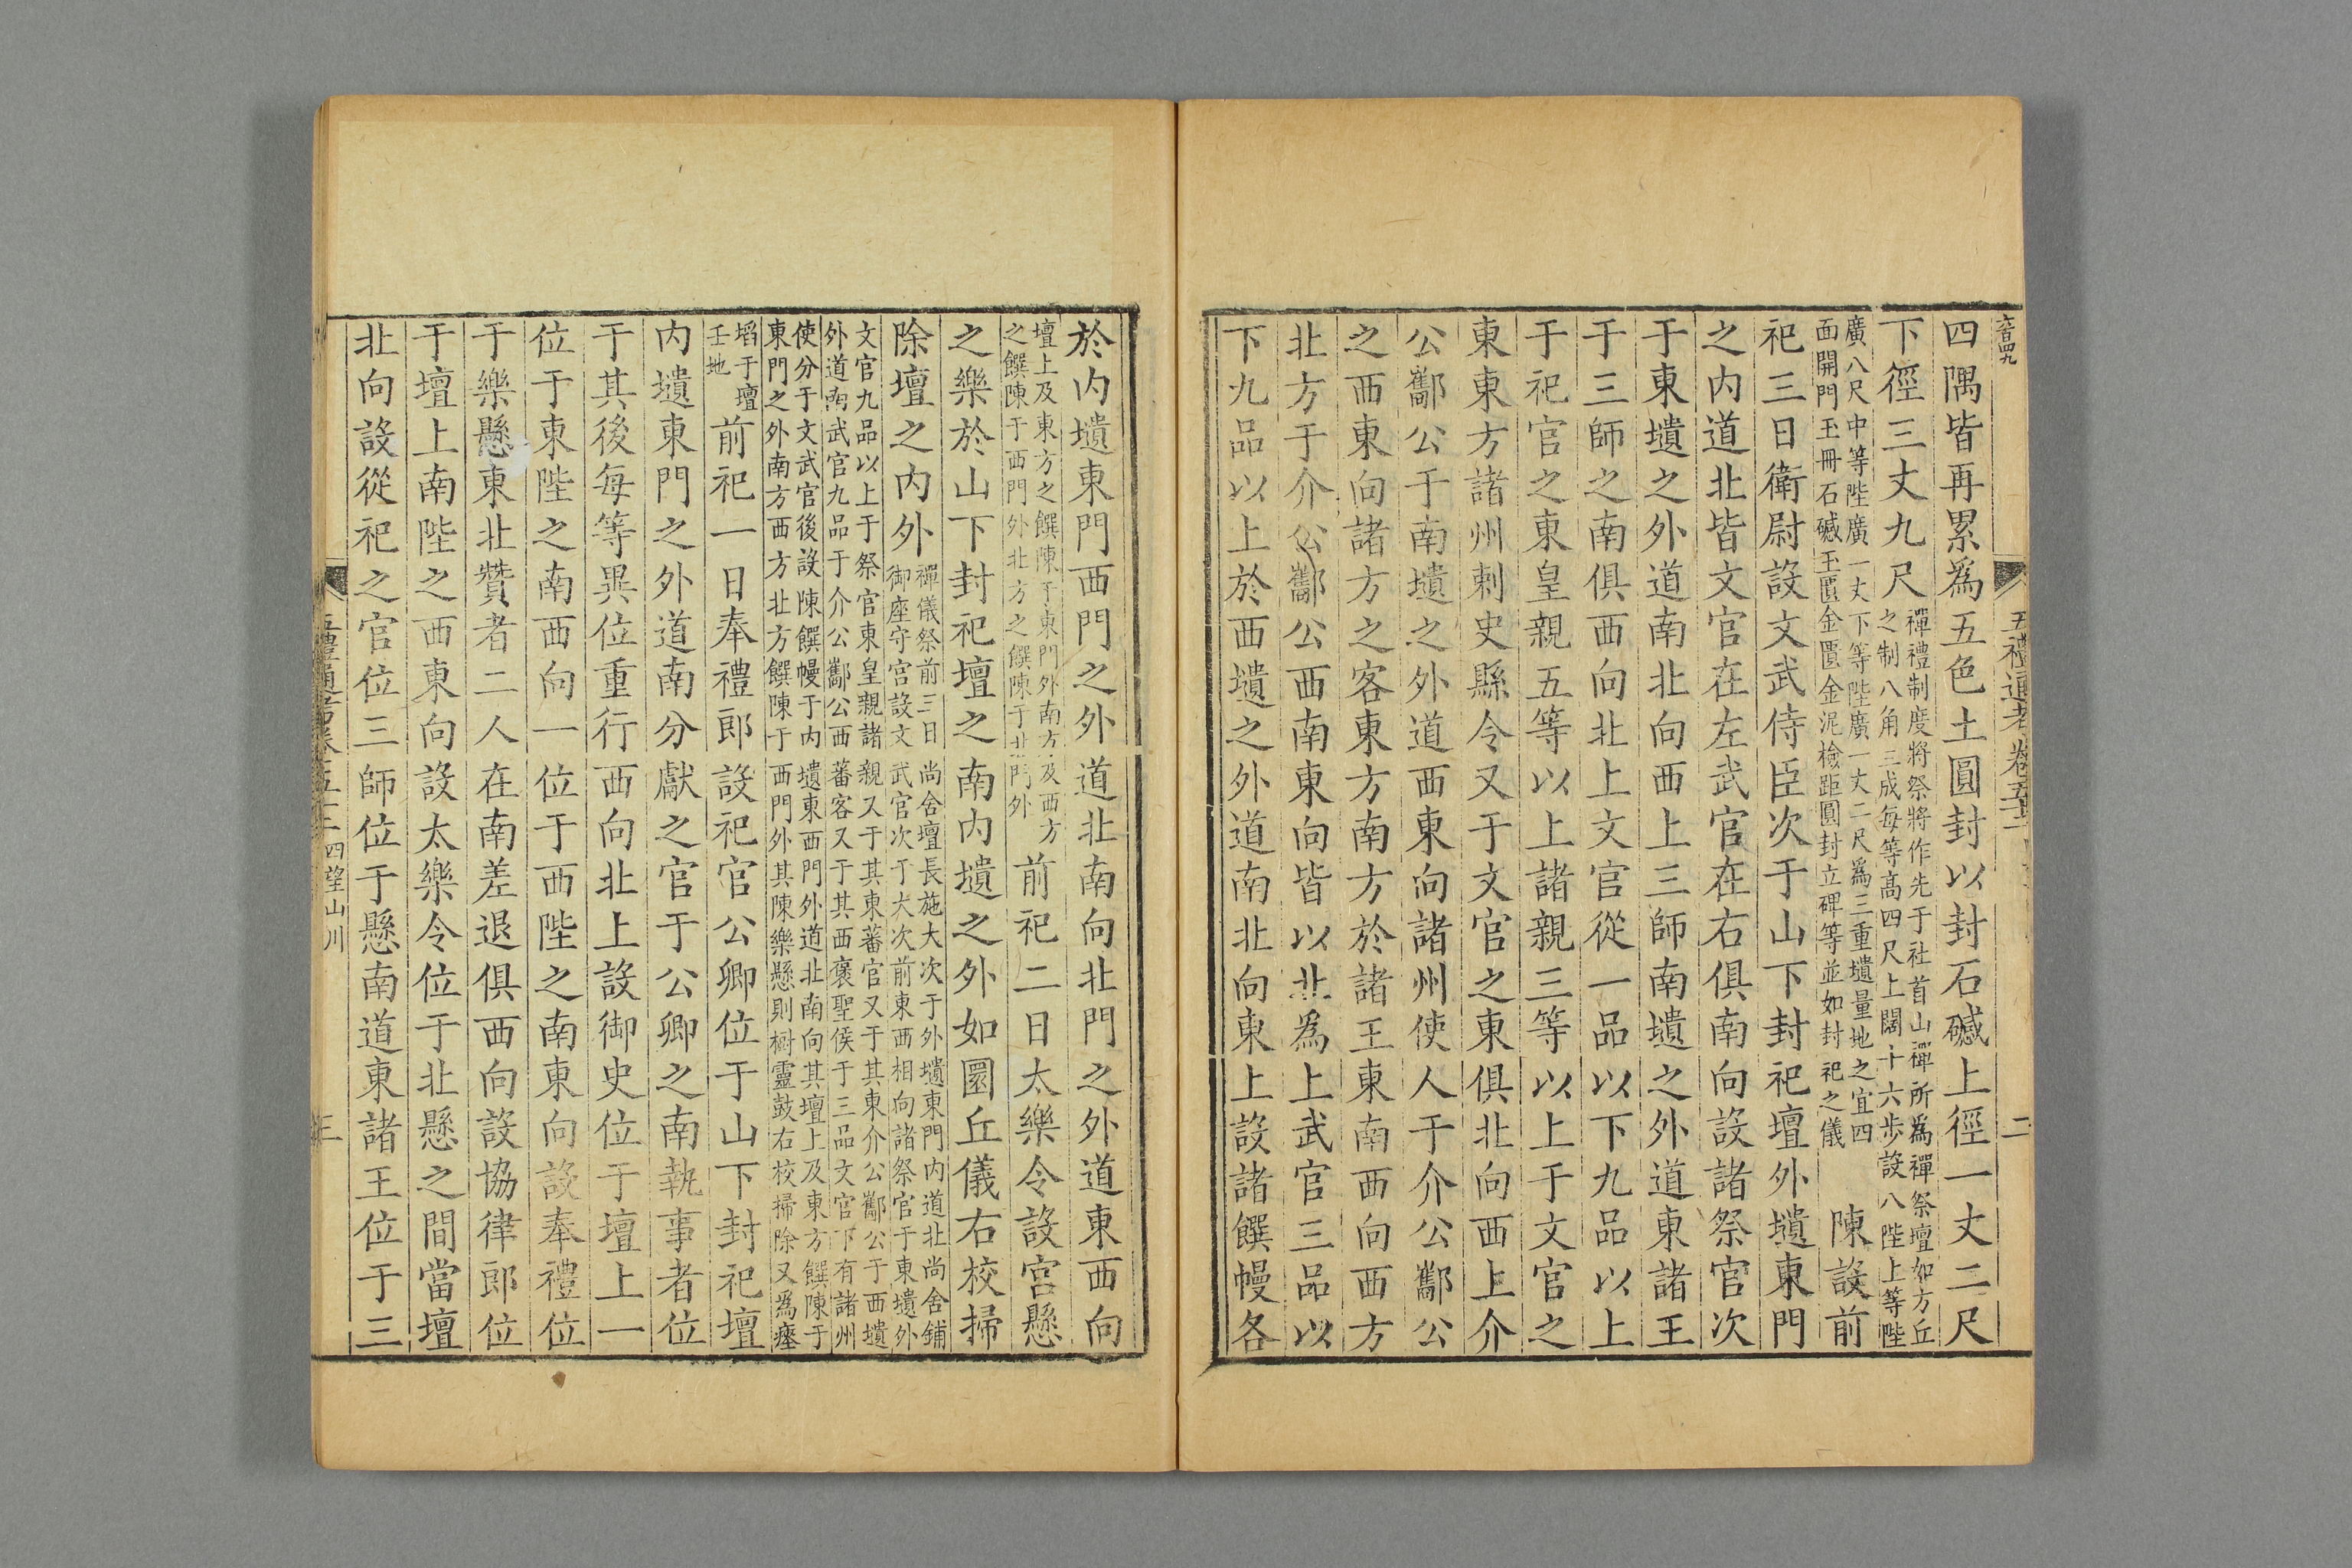 五禮通考卷五十
二
四隅皆再累爲五色土圓封以封石䃭上徑一丈二尺
下徑三丈九尺
禪禮制度將祭將作先于社首山禪所爲禪祭壇如方丘
之制八角三成每等高四尺上闊十六步設八陛上等陛
廣八尺中等陛廣一丈下等陛廣一丈二尺爲三重壝量地之宜四
面開門玉冊石䃭玉匱金匱金泥檢距圓封立碑等並如封祀之儀
陳設前
祀三日衛尉設文武侍臣次于山下封祀壇外壝東門
之内道北皆文官在左武官在右俱南向設諸祭官次
于東壝之外道南北向西上三師南壝之外道東諸王
于三師之南俱西向北上文官從一品以下九品以上
于祀官之東皇親五等以上諸親三等以上于文官之
東東方諸州刺史縣令又于文官之東俱北向西上介
公酅公于南壝之外道西東向諸州使人于介公酅公
之西東向諸方之客東方南方於諸王東南西向西方
北方于介公酅公西南東向皆以北爲上武官三品以
下九品以上於西壝之外道南北向東上設諸饌幔各
於内壝東門西門之外道北南向北門之外道東西向
壇上及東方之饌陳于東門外南方及西方
之饌陳于西門外北方之饌陳于北門外
前祀二日太樂令設宮懸
之樂於山下封祀壇之南内壝之外如圜丘儀右校掃
除壇之内外
禪儀祭前三日尚舍壇長施大次于外壝東門内道北尚舍鋪
御座守宮設文武官次于大次前東西相向諸祭官于東壝外
文官九品以上于祭官東皇親諸親又于其東蕃官又于其東介公酅公于西壝
外道南武官九品于介公酅公西蕃客又于其西褒聖侯于三品文官下有諸州
使分于文武官後設陳饌幔于内壝東西門外道北南向其壇上及東方饌陳于
東門之外南方西方北方饌陳于西門外其陳樂懸則樹靈鼓右校掃除又爲瘞
埳于壇
壬地
前祀一日奉禮郎設祀官公卿位于山下封祀壇
内壝東門之外道南分獻之官于公卿之南執事者位
于其後每等異位重行西向北上設御史位于壇上一
位于東陛之南西向一位于西陛之南東向設奉禮位
于樂懸東北贊者二人在南差退俱西向設協律郎位
于壇上南陛之西東向設太樂令位于北懸之間當壇
北向設從祀之官位三師位于懸南道東諸王位于三
四望山川
三